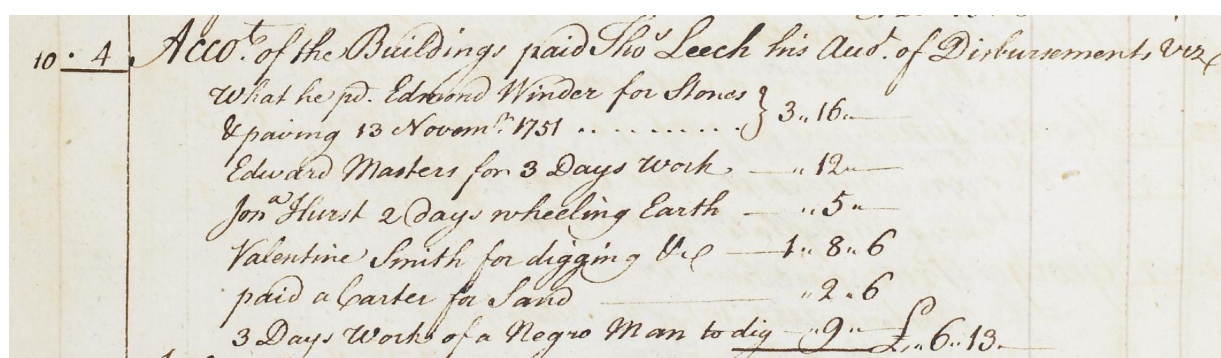 10 . 4 Acco.t of the Buildings paid Tho.s Leech his Acco.t of Disbursements Viz
What he pd. Edmond Winder for Stones } 3 „ 16 „ —
& paving 13 Novem.r 1751 ..........
Edward Masters for 3 Days Work — „ 12 „ —
Jon.a Hurst 2 days wheeling Earth — „ 5 „ —
Valentine Smith for digging &c — 1 „ 8 „ 6
paid a Carter for Sand — „ 2 „ 6
3 Days Work of a Negro Man to dig — „ 9 „ — £ „ 6 „ 13 —